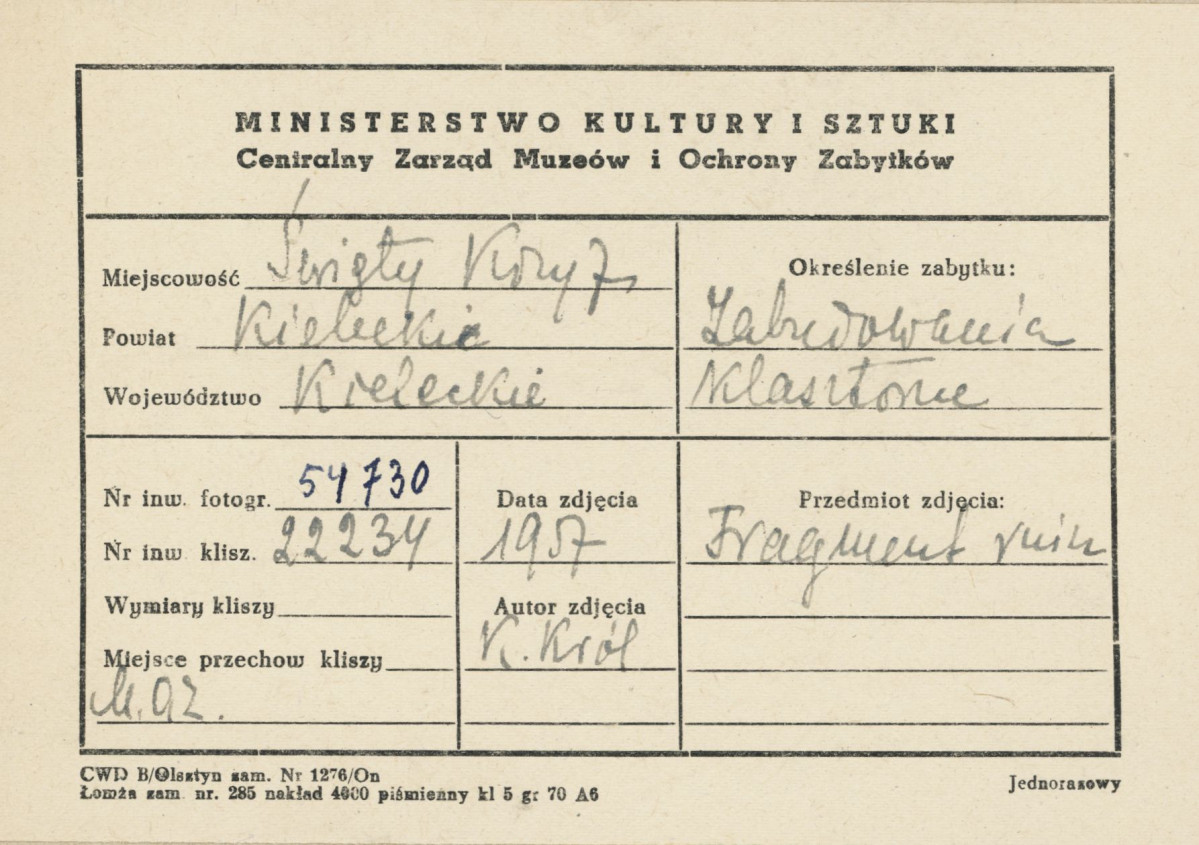 MINISTERSTWO KULTURY I SZTUKI
Centralny Zarząd Muzeów i Ochrony Zabytków
Miejscowość Święty Krzyż
Powiat Kieleckie
Województwo Kieleckie
Określenie zabytku:
Zabudowania
klasztorne
Nr inw. fotogr. 54730
Nr inw. klisz. 22234
Wymiary kliszy
Miejsce przechow kliszy
Data zdjęcia
1957
Autor zdjęcia
K. Król
Przedmiot zdjęcia:
Fragment ruin
CWD B/Olsztyn zam. Nr 1276/On
Łomża zam. nr. 285 nakład 4000 piśmienny kl 5 gr 70 A6
Jednorazowy